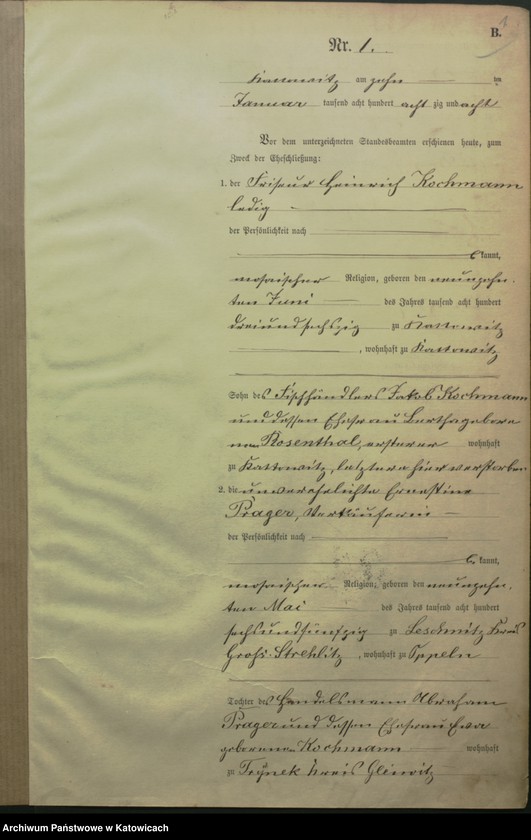 B.
Nr. 1.
Kattowitz am zehn ten
Januar tausend acht hundert acht zig und acht
Vor dem unterzeichneten Standesbeamten erschienen heute, zum
Zweck der Eheschließung:
1. der Friseur Heinrich Kochmann
ledig
der Persönlichkeit nach
kannt,
mosaischer Religion, geboren den neunzehn-
ten Juni des Jahres tausend acht hundert
dreiundsechszig zu Kattowitz
, wohnhaft zu Kattowitz
Sohn des Fischhändlers Jakob Kochmann
und dessen Ehefrau Bertha gebore-
nen Rosenthal, ersterer wohnhaft
zu Kattowitz, letztere hier verstorben
2. die unverehelichte Ernestine
Prager, Verkäuferin
der Persönlichkeit nach
kannt,
mosaischer Religion, geboren den neunzehn-
ten Mai des Jahres tausend acht hundert
sechsundfünfzig zu Leschnitz Kreis
Groß-Strehlitz, wohnhaft zu Oppeln
Tochter des Handelsmann Abraham
Prager und dessen Ehefrau Eva
geborenen Kochmann wohnhaft
zu Trynek Kreis Gleiwitz
Archiwum Państwowe w Katowicach